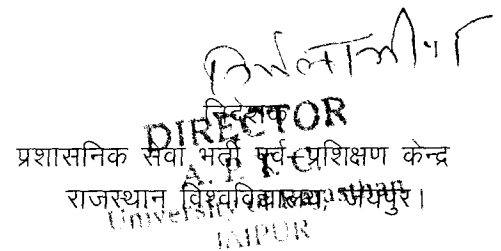 निदेशक
DIRECTOR
प्रशासनिक सेवा भर्ती पूर्व-प्रशिक्षण केन्द्र
राजस्थान विश्वविद्यालय, जयपुर।
University of Rajasthan
JAIPUR